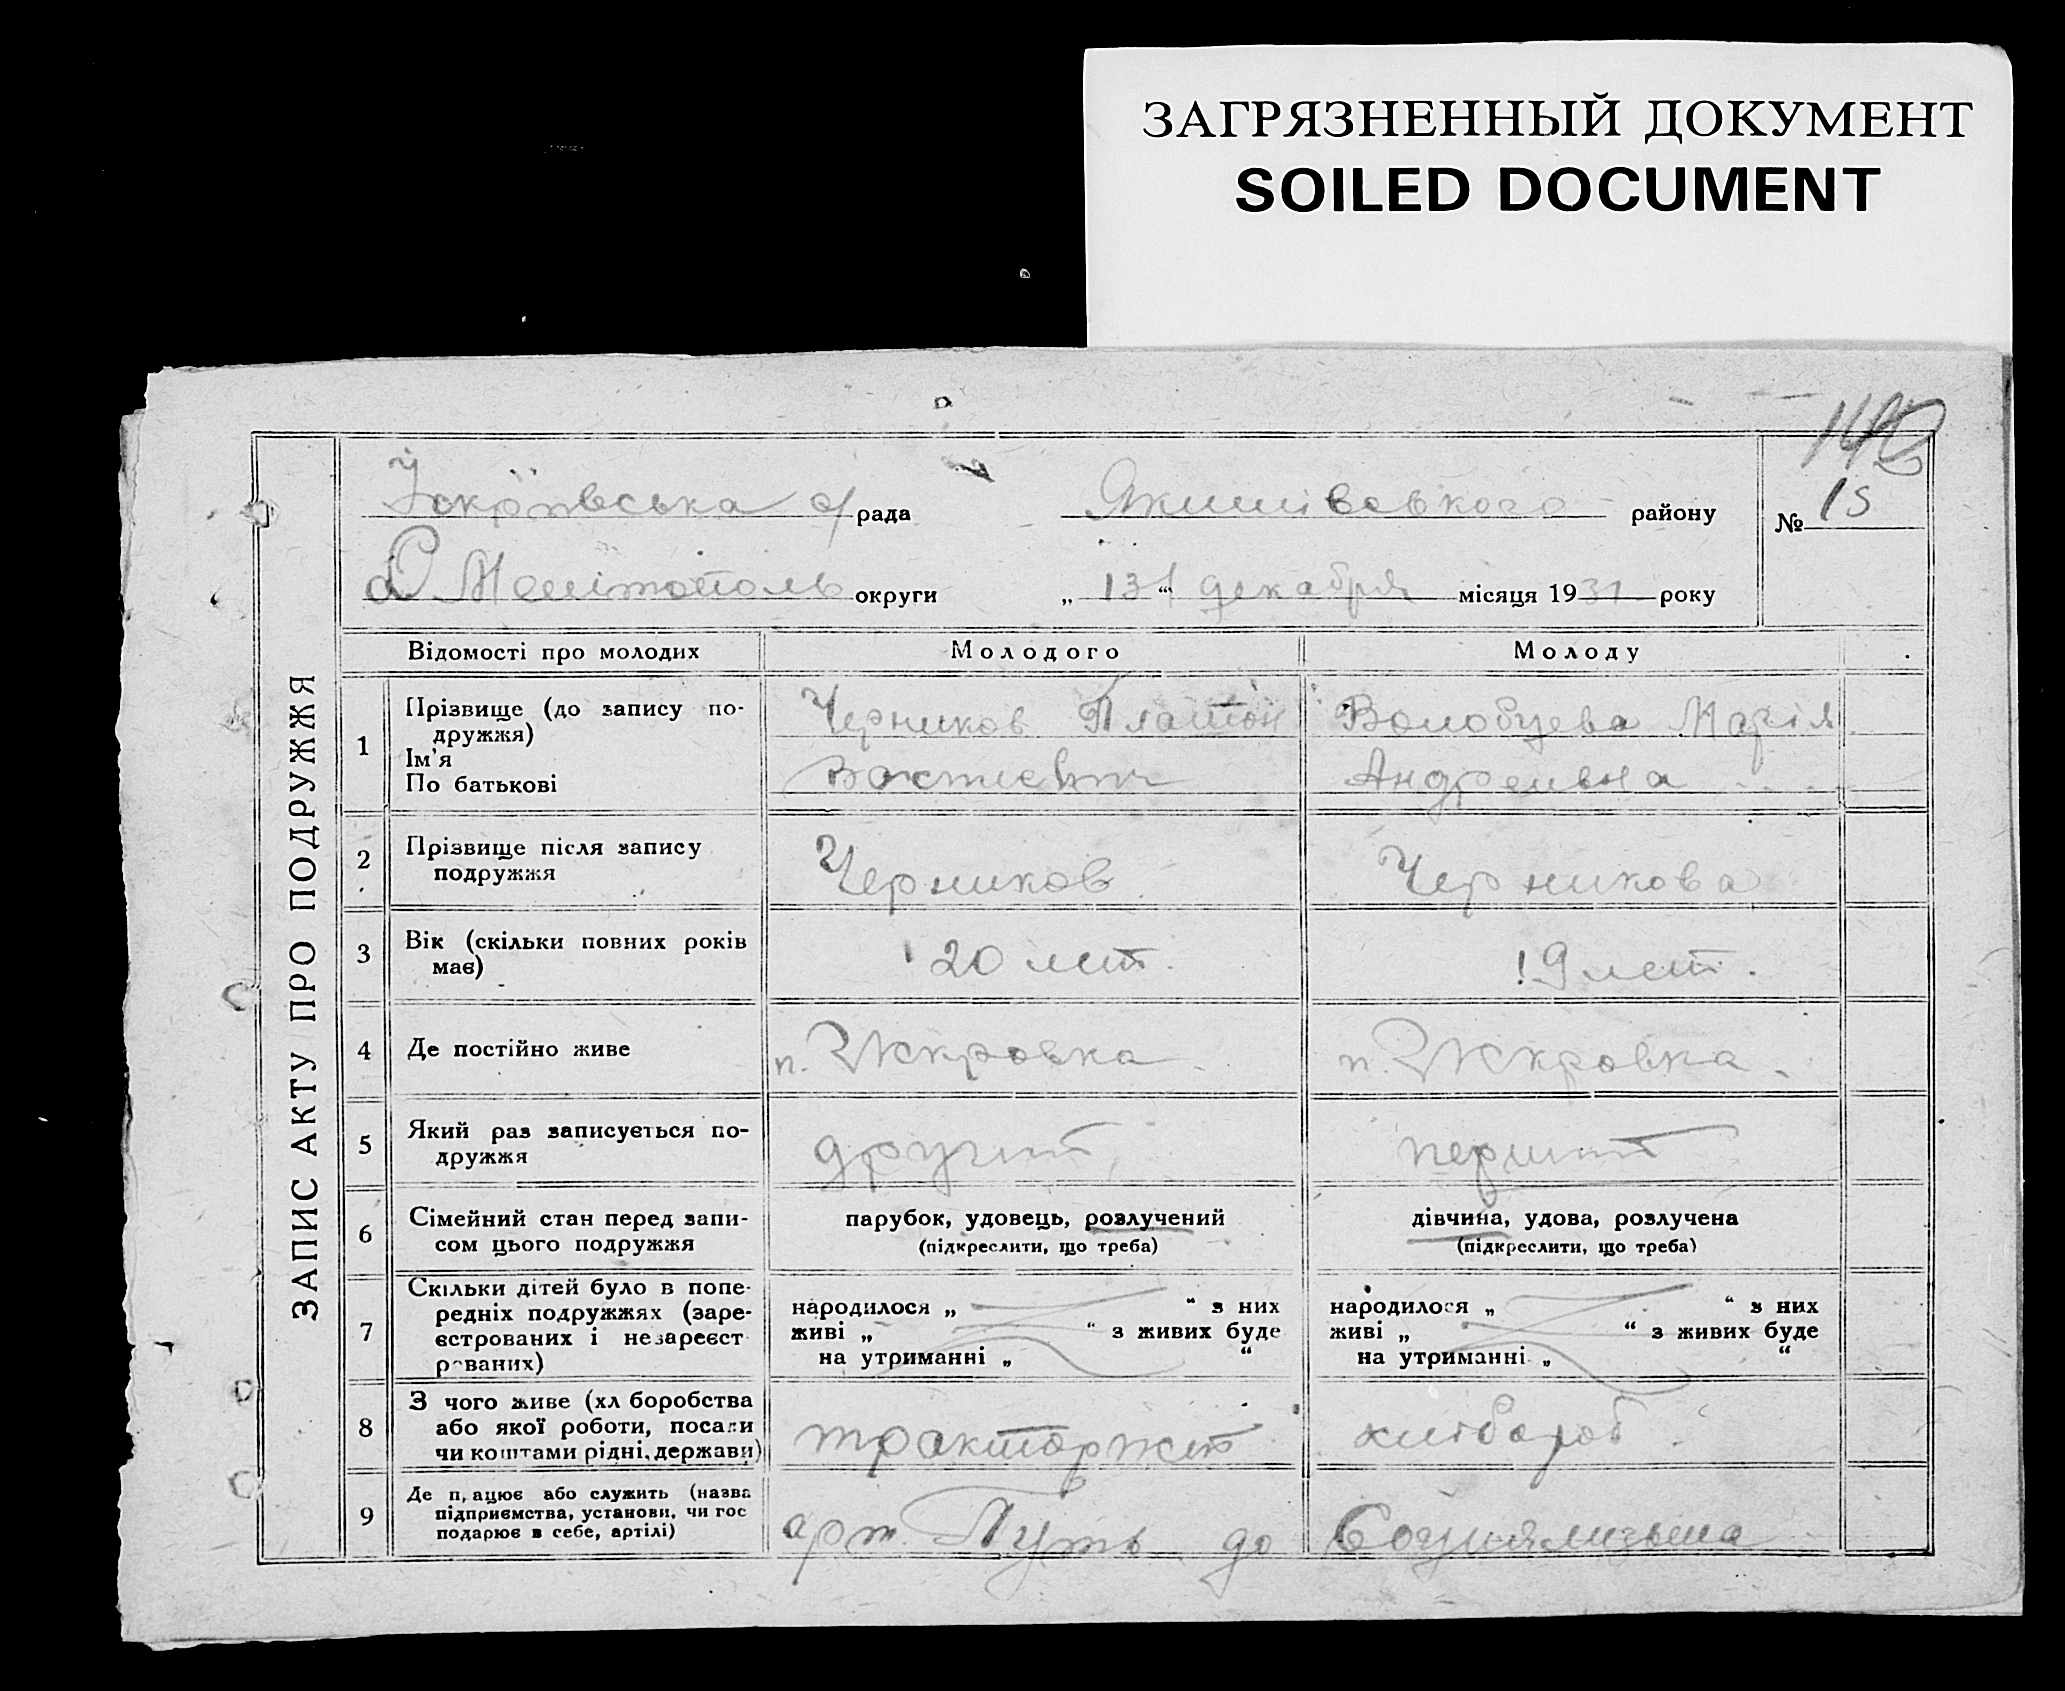 ЗАГРЯЗНЕННЫЙ ДОКУМЕНТ
SOILED DOCUMENT
рада
району
№ 15
Мелітополь округи
„ 13 “ декабря місяця 1931 року
ЗАПИС АКТУ ПРО ПОДРУЖЖЯ
Відомості про молодих
Молодого
Молоду
1
Прізвище (до запису по-
дружжя)
Ім'я
По батькові
Черников Платон
Волобуева Марія
Андреевна
2
Прізвище після запису
подружжя
Черников
Черникова
3
Вік (скільки повних років
має)
20 лет.
19 лет.
4
Де постійно живе
5
Який раз записується по-
дружжя
другий
перший
6
Сімейний стан перед запи-
сом цього подружжя
парубок, удовець, розлучений
(підкреслити, що треба)
дівчина, удова, розлучена
(підкреслити, що треба)
7
Скільки дітей було в попе-
редніх подружжях (заре-
єстрованих і незареєст
рованих)
народилося „ “ з них
живі „ “ з живих буде
на утриманні „ “
народилося „ “ з них
живі „ “ з живих буде
на утриманні „ “
8
З чого живе (хл боробства
або якої роботи, посади
чи коштами рідні, держави)
хлібороб
9
Де п, ацює або служить (назва
підприємства, установи, чи гос
подарює в себе, артілі)
арт. Путь до Социялизьма